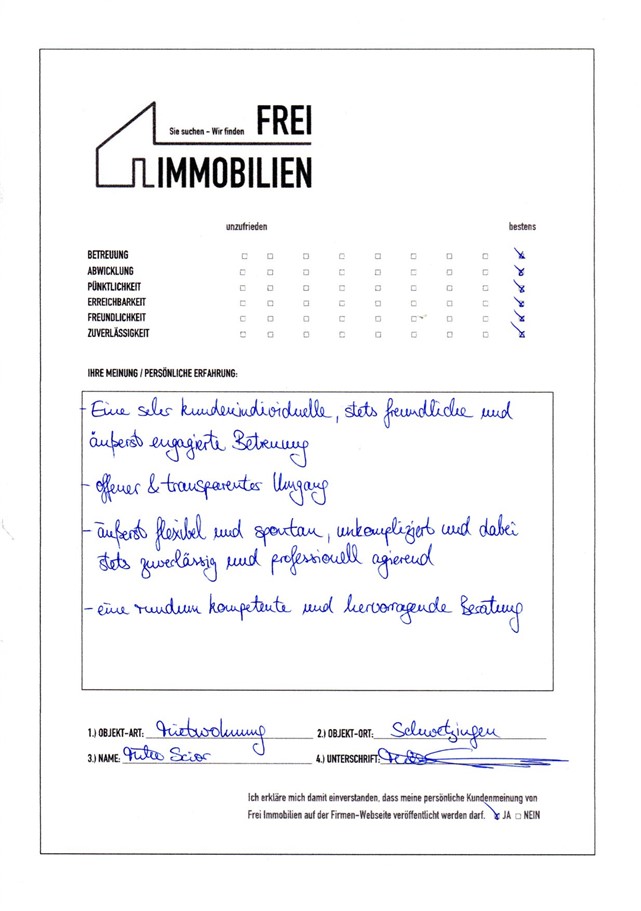 Sie suchen – Wir finden FREI
IMMOBILIEN
unzufrieden bestens
BETREUUNG
ABWICKLUNG
PÜNKTLICHKEIT
ERREICHBARKEIT
FREUNDLICHKEIT
ZUVERLÄSSIGKEIT
IHRE MEINUNG / PERSÖNLICHE ERFAHRUNG:
- Eine sehr kundenindividuelle, stets freundliche und
äußerst engagierte Betreuung
- offener & transparentes Umgang
- äußerst flexibel und spontan, unkompliziert und dabei
stets zuverlässig und professionell agierend
- eine rundum kompetente und hervorragende Beratung
1.) OBJEKT-ART: Mietwohnung 2.) OBJEKT-ORT: Schwetzingen
3.) NAME: Scior 4.) UNTERSCHRIFT:
Ich erkläre mich damit einverstanden, dass meine persönliche Kundenmeinung von
Frei Immobilien auf der Firmen-Webseite veröffentlicht werden darf. JA NEIN